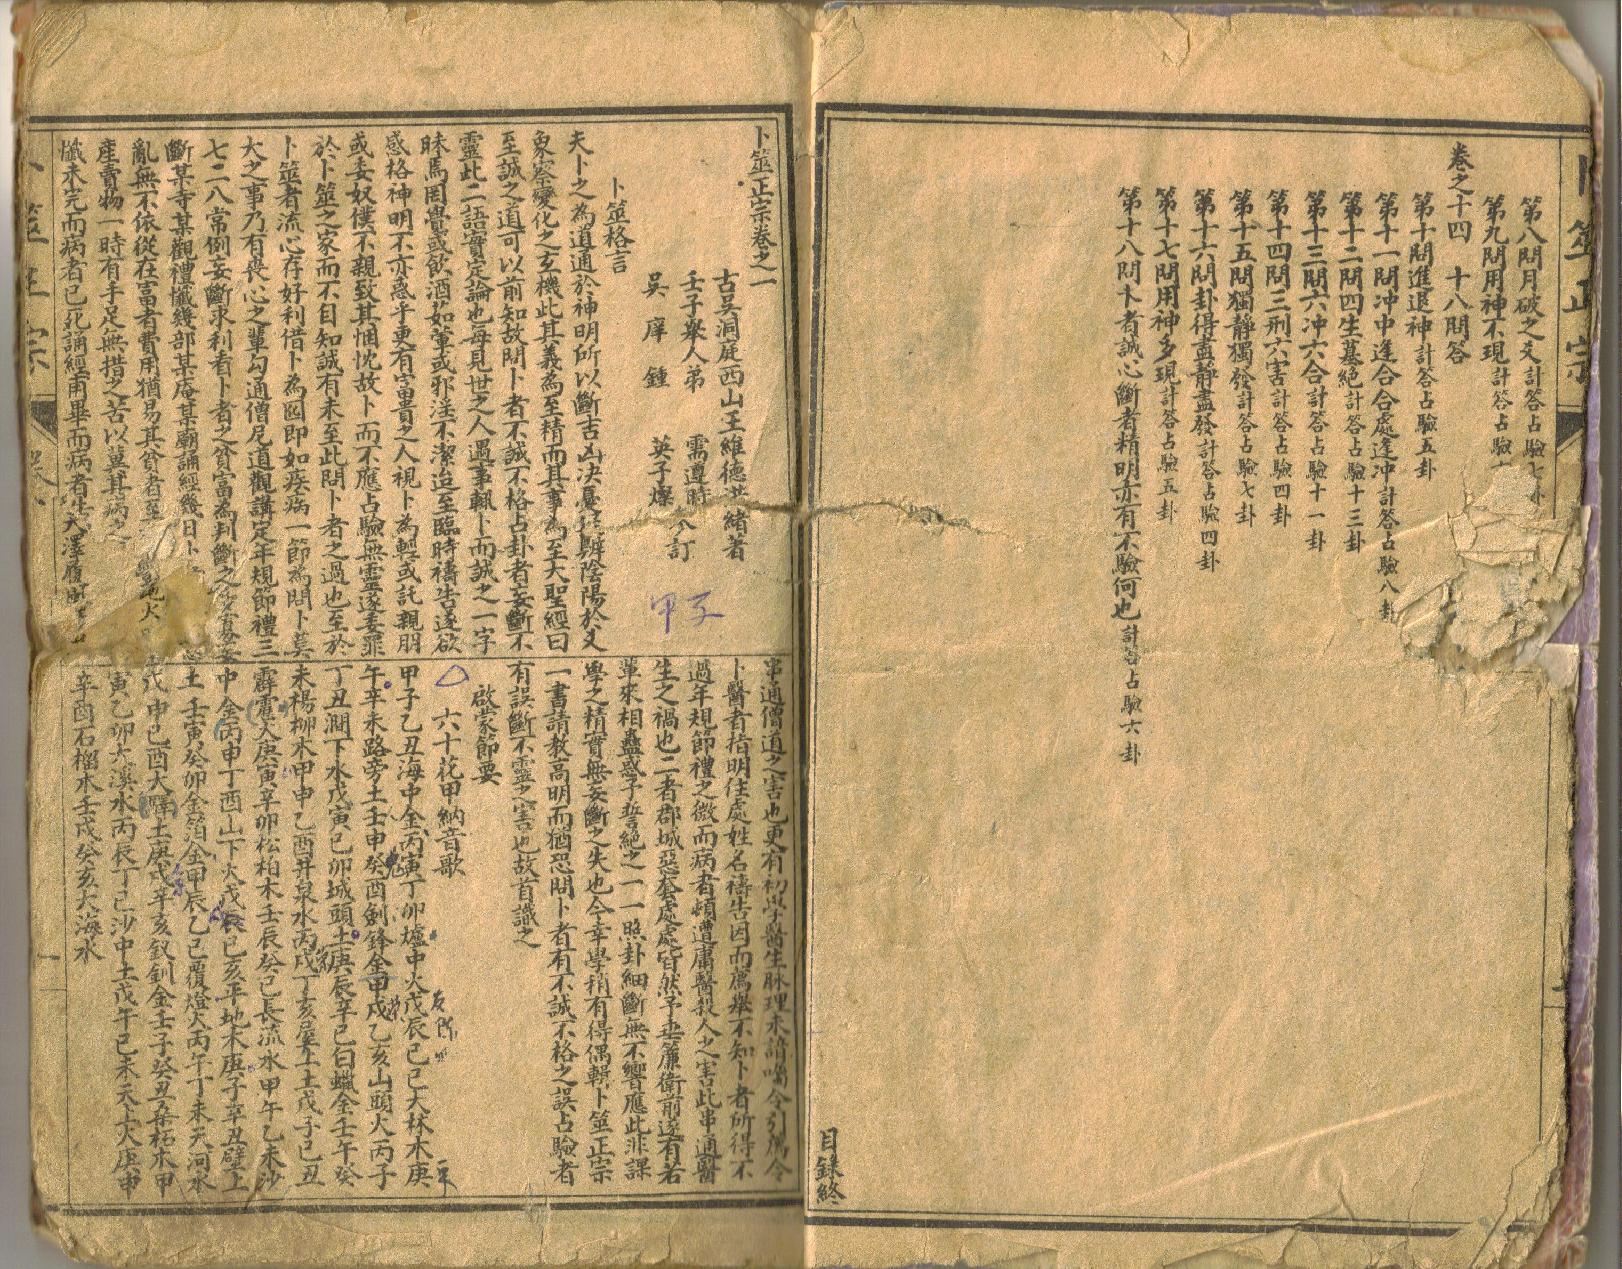 第八問月破之爻計答占驗七卦
第九問用神不現計答占驗
卷之十四　十八問答
第十問進退神計答占驗五卦
第十一問冲中逢合合處逢冲計答占驗八卦
第十二問四生墓絕計答占驗十三卦
第十三問六冲六合計答占驗十一卦
第十四問三刑六害計答占驗四卦
第十五問獨靜獨發計答占驗七卦
第十六問卦得盡靜盡發計答占驗四卦
第十七問用神多現計答占驗五卦
第十八問卜者誠心斷者精明亦有不驗何也計答占驗六卦
目録終
卜筮正宗卷之一
古吳洞庭西山王維德洪緒著
壬子舉人弟　需遵時
吳　庠　鍾　英子燦　訂
卜筮格言
夫卜之為道通於神明所以斷吉凶決憂疑辨陰陽於爻
象察變化之玄機此其義為至精而其事為至大聖經曰
至誠之道可以前知故問卜者不誠不格占卦者妄斷不
靈此二語實定論也每見世之人遇事輒卜而誠之一字
昧焉罔覺或飲酒茹葷或邪淫不潔迨至臨時禱告遂欲
感格神明不亦惑乎更有富貴之人視卜為輕或託親朋
或委奴僕不親致其悃忱故卜而不應占驗無靈遂委罪
於卜筮之家而不自知誠有未至此問卜者之過也至於
卜筮者流心存好利借卜為囮即如疾病一節為問卜莫
大之事乃有喪心之輩勾通僧尼道觀講定年規節禮三
七二八常例妄斷求利看卜者之貧富為判斷之多寡妄
斷某寺某觀禮懺幾部某庵某廟誦經幾日卜
亂無不依從在富者費用猶易其貧者至
產賣物一時有手足無措之苦以冀其病之
懺未完而病者已死誦經甫畢而病者
串通僧道之害也更有初學醫生脉理未諳囑令引薦令
卜醫者指明住處姓名禱告因而薦舉不知卜者所得不
過年規節禮之微而病者頓遭庸醫殺人之害此串通醫
生之禍也二者郡城惡套處處皆然予垂簾衛前遂有若
輩來相蠱惑予誓絕之一一照卦細斷無不響應此非課
學之精實無妄斷之失也今幸學稍有得偶輯卜筮正宗
一書請教高明而猶恐問卜者有不誠不格之誤占驗者
有誤斷不靈之害也故首識之
啟蒙節要
六十花甲納音歌
甲子乙丑海中金丙寅丁卯爐中火戊辰己巳大林木庚
午辛未路旁土壬申癸酉劍鋒金甲戌乙亥山頭火丙子
丁丑澗下水戊寅己卯城頭土庚辰辛巳白蠟金壬午癸
未楊柳木甲申乙酉井泉水丙戌丁亥屋上土戊子己丑
霹靂火庚寅辛卯松柏木壬辰癸巳長流水甲午乙未沙
中金丙申丁酉山下火戊戌己亥平地木庚子辛丑壁上
土壬寅癸卯金箔金甲辰乙巳覆燈火丙午丁未天河水
戊申己酉大驛土庚戌辛亥釵釧金壬子癸丑桑柘木甲
寅乙卯大溪水丙辰丁巳沙中土戊午己未天上火庚申
辛酉石榴木壬戌癸亥大海水
甲子